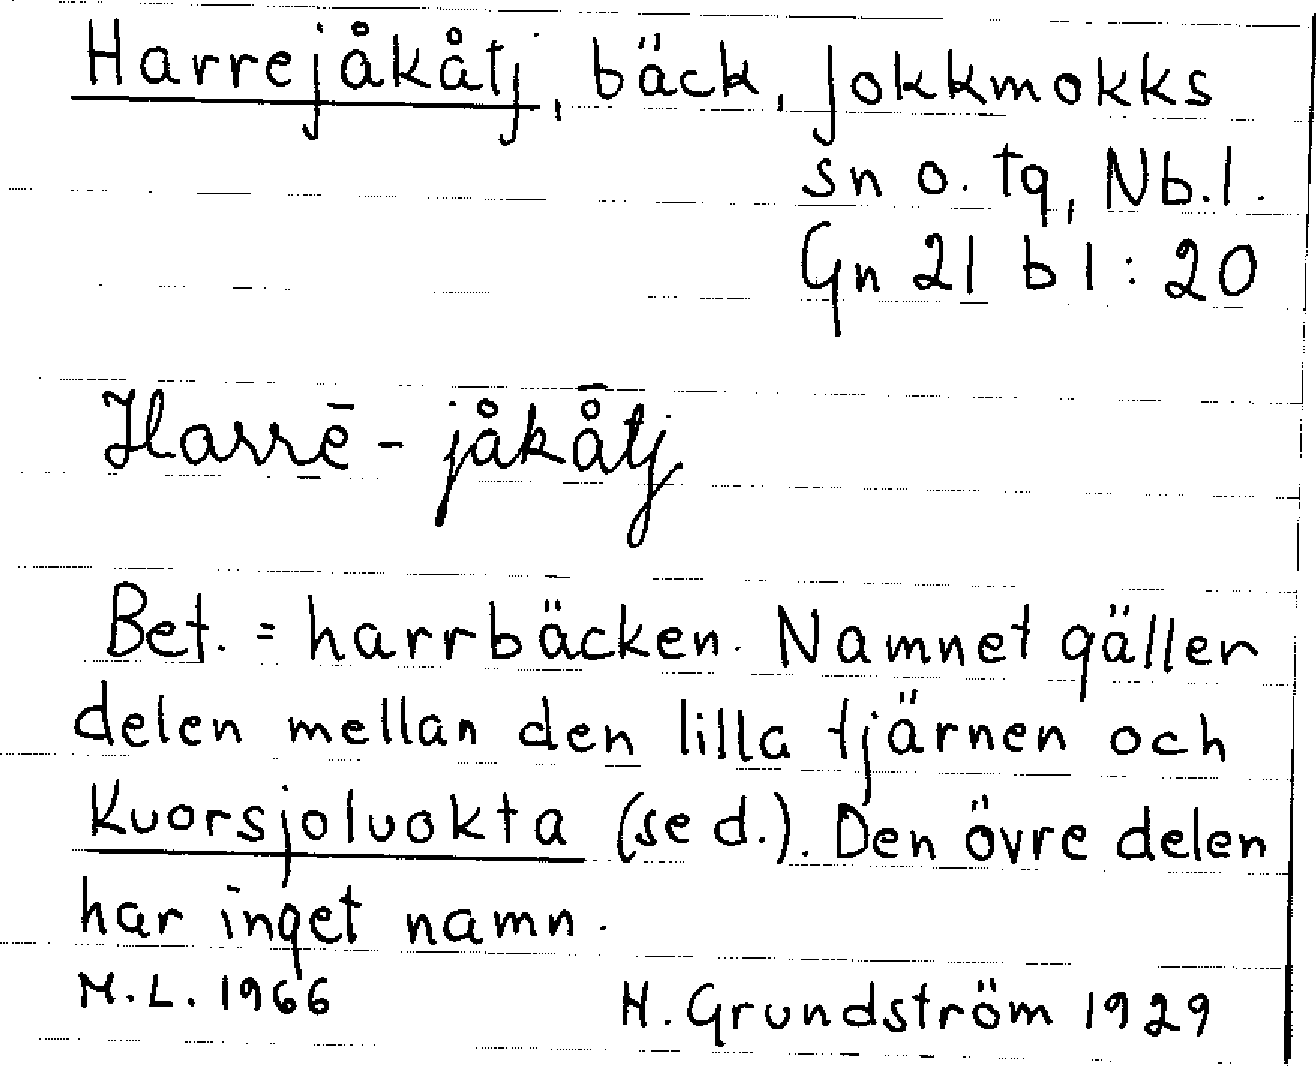 Harrejåkåtj, bäck, Jokkmokks
sn o. tg, Nb.l.
Gn 21 b 1:20
Harrē-jåkå̄tj
Bet. = harrbäcken. Namnet gäller
delen mellan den lilla tjärnen och
Kuorsjoluokta (se d.). Den övre delen
har inget namn.
M.L. 1966 H. Grundström 1929